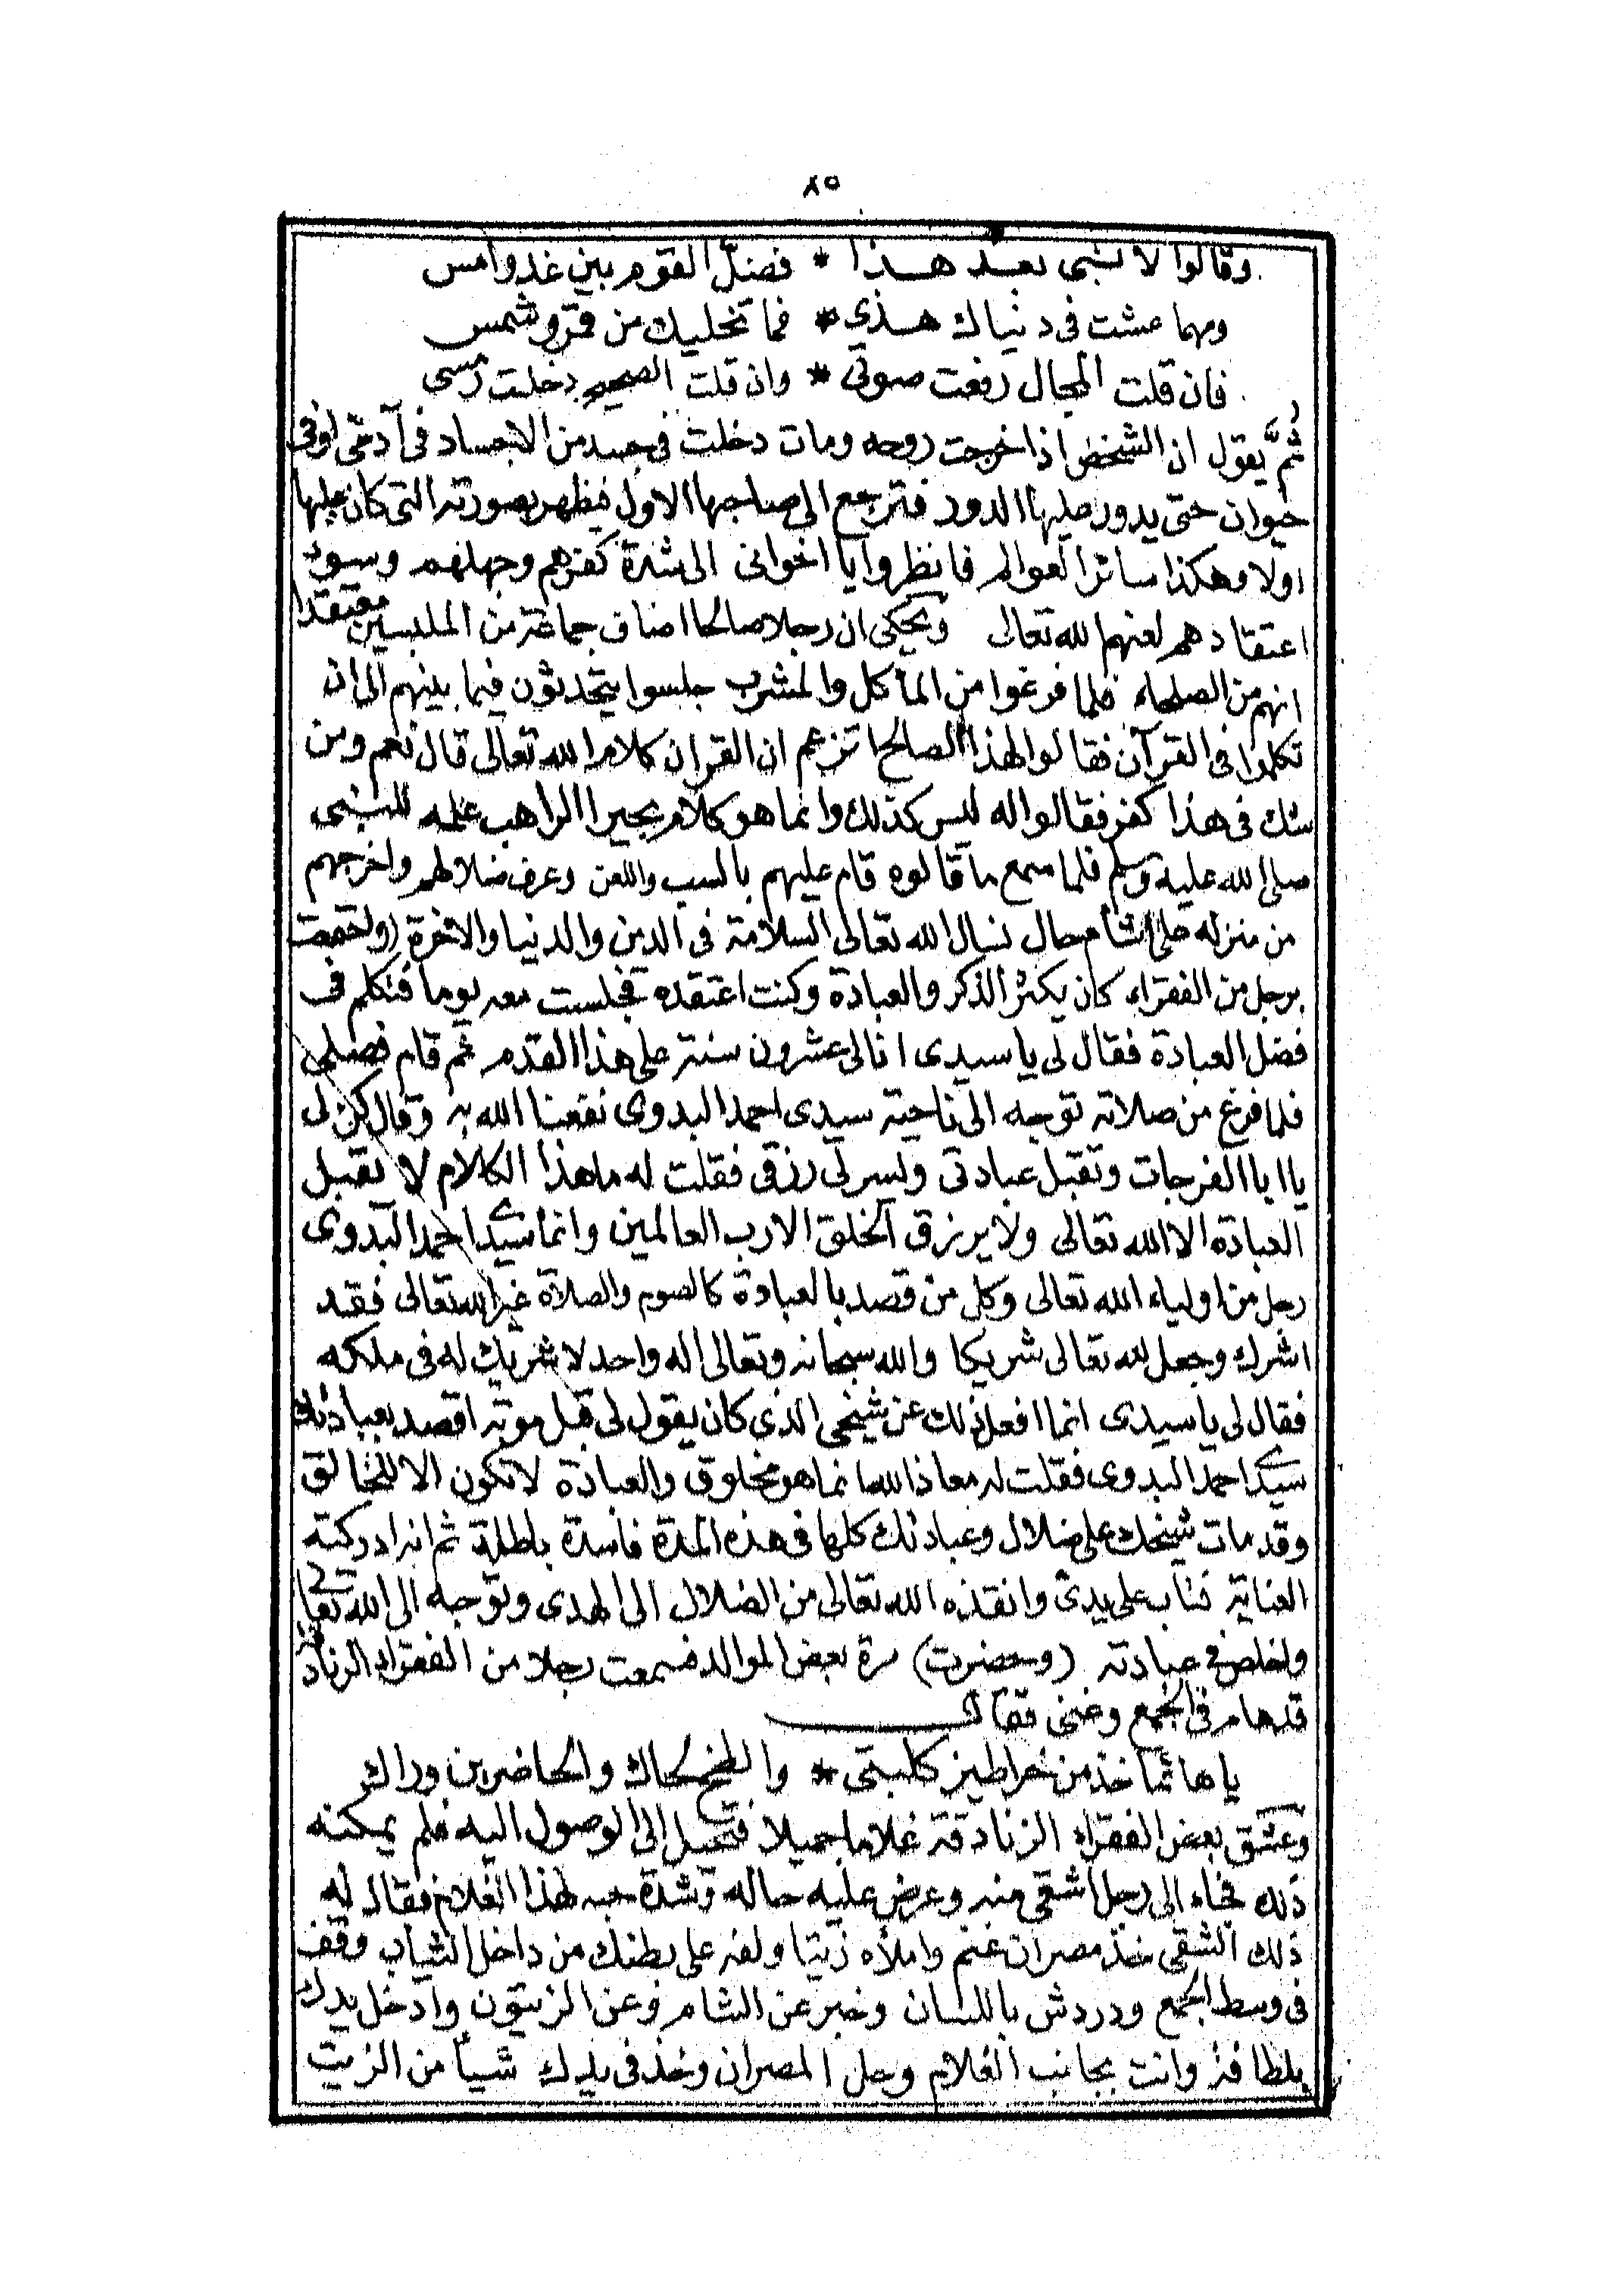 ٨٥
وقالوا لا نبي بعد هذا * فضلّ القوم بين غد وأمس
ومهما عشت في دنياك هذي * فما تخليك من قمر وشمس
فان قلت المحال رفعت صوتي * وان قلت الصحيح دخلت رمسي
ثمّ يقول ان الشخص اذا خرجت روحه ومات دخلت في جسد من الاجساد في آدمي اوفي
حيوان حتى يدور عليها الدور فترجع الى صاحبها الاول فيظهر بصورته التي كان عليها
اولا وهكذا سائر العوالم فانظروا يا اخواني الى شدة كفرهم وجهلهم وسوء
اعتقادهم لعنهم الله تعالى ويحكى ان رجلا صالحا اضاف جماعة من الملبسين معتقدا
انهم من الصلحاء فلما فرغوا من المأكل والمشرب جلسوا يتحدثون فيما بينهم الى ان
تكلموا في القرآن فقالوا لهذا الصالح اتزعم ان القران كلام الله تعالى قال نعم ومن
شك في هذا كفر فقالوا له ليس كذلك وانما هو كلام بحيرا الراهب علمه للنبي
صلى الله عليه وسلم فلما سمع ما قالوه قام عليهم بالسب واللعن وعرف ضلالهم واخرجهم
من منزله على اشأم حال نسال الله تعالى السلامة في الدين والدنيا والآخرة (واجتمعت
برجل من الفقراء كان يكثر الذكر والعبادة وكنت اعتقده فجلست معه يوما فتكلم في
فضل العبادة فقال لي يا سيدي انا لي عشرون سنة على هذا القدم ثم قام فصلى
فلما فرغ من صلاته توجه الى ناحية سيدي احمد البدوي نفعنا الله به وقال كن لي
يا ابا الفرجات وتقبل عبادتي ويسر لي رزقي فقلت له ما هذا الكلام لا يقبل
العبادة الا الله تعالى ولا يرزق الخلق الا رب العالمين وانما سيدي احمد البدوي
رجل من اولياء الله تعالى وكل من قصد بالعبادة كالصوم والصلاة غير الله تعالى فقد
اشرك وجعل لله تعالى شريكا والله سبحانه وتعالى اله واحد لا شريك له في ملكه
فقال لي يا سيدي انما افعل ذلك عن شيخي الذي كان يقول لي قبل موته اقصد بعبادتك
سيدي احمد البدوي فقلت له معاذ الله انما هو مخلوق والعبادة لا تكون الا للخالق
وقد مات شيخك على ضلال وعبادتك كلها في هذه المدة فاسدة باطلة ثم انه ادركته
العناية فتاب على يدي وانقذه الله تعالى من الضلال الى الهدى وتوجه الى الله تعالى
واخلص في عبادته (وحضرت) مرة بعض الموالد فسمعت رجلا من الفقراء الزنادقة
قد هام في الجمع وغنى فقال
يا هائما خذ من خراطيز كلبتي * والطخ لحاك والحاضرين وراك
وعشق بعض الفقراء الزنادقة غلاما جميلا فتحيل الى الوصول اليه فلم يمكنه
ذلك فجاء الى رجل اشقى منه وعرض عليه حاله وشدة حبه لهذا الغلام فقال له
ذلك الشقي خذ مصران غنم واملأه زيتا ولفه على بطنك من داخل الثياب وقف
في وسط الجمع ودردش باللسان وخبر عن الشام وعن الزيتون وادخل يدك
بلطافة وانت بجانب الغلام وحل المصران وخذ في يدك شيأ من الزيت